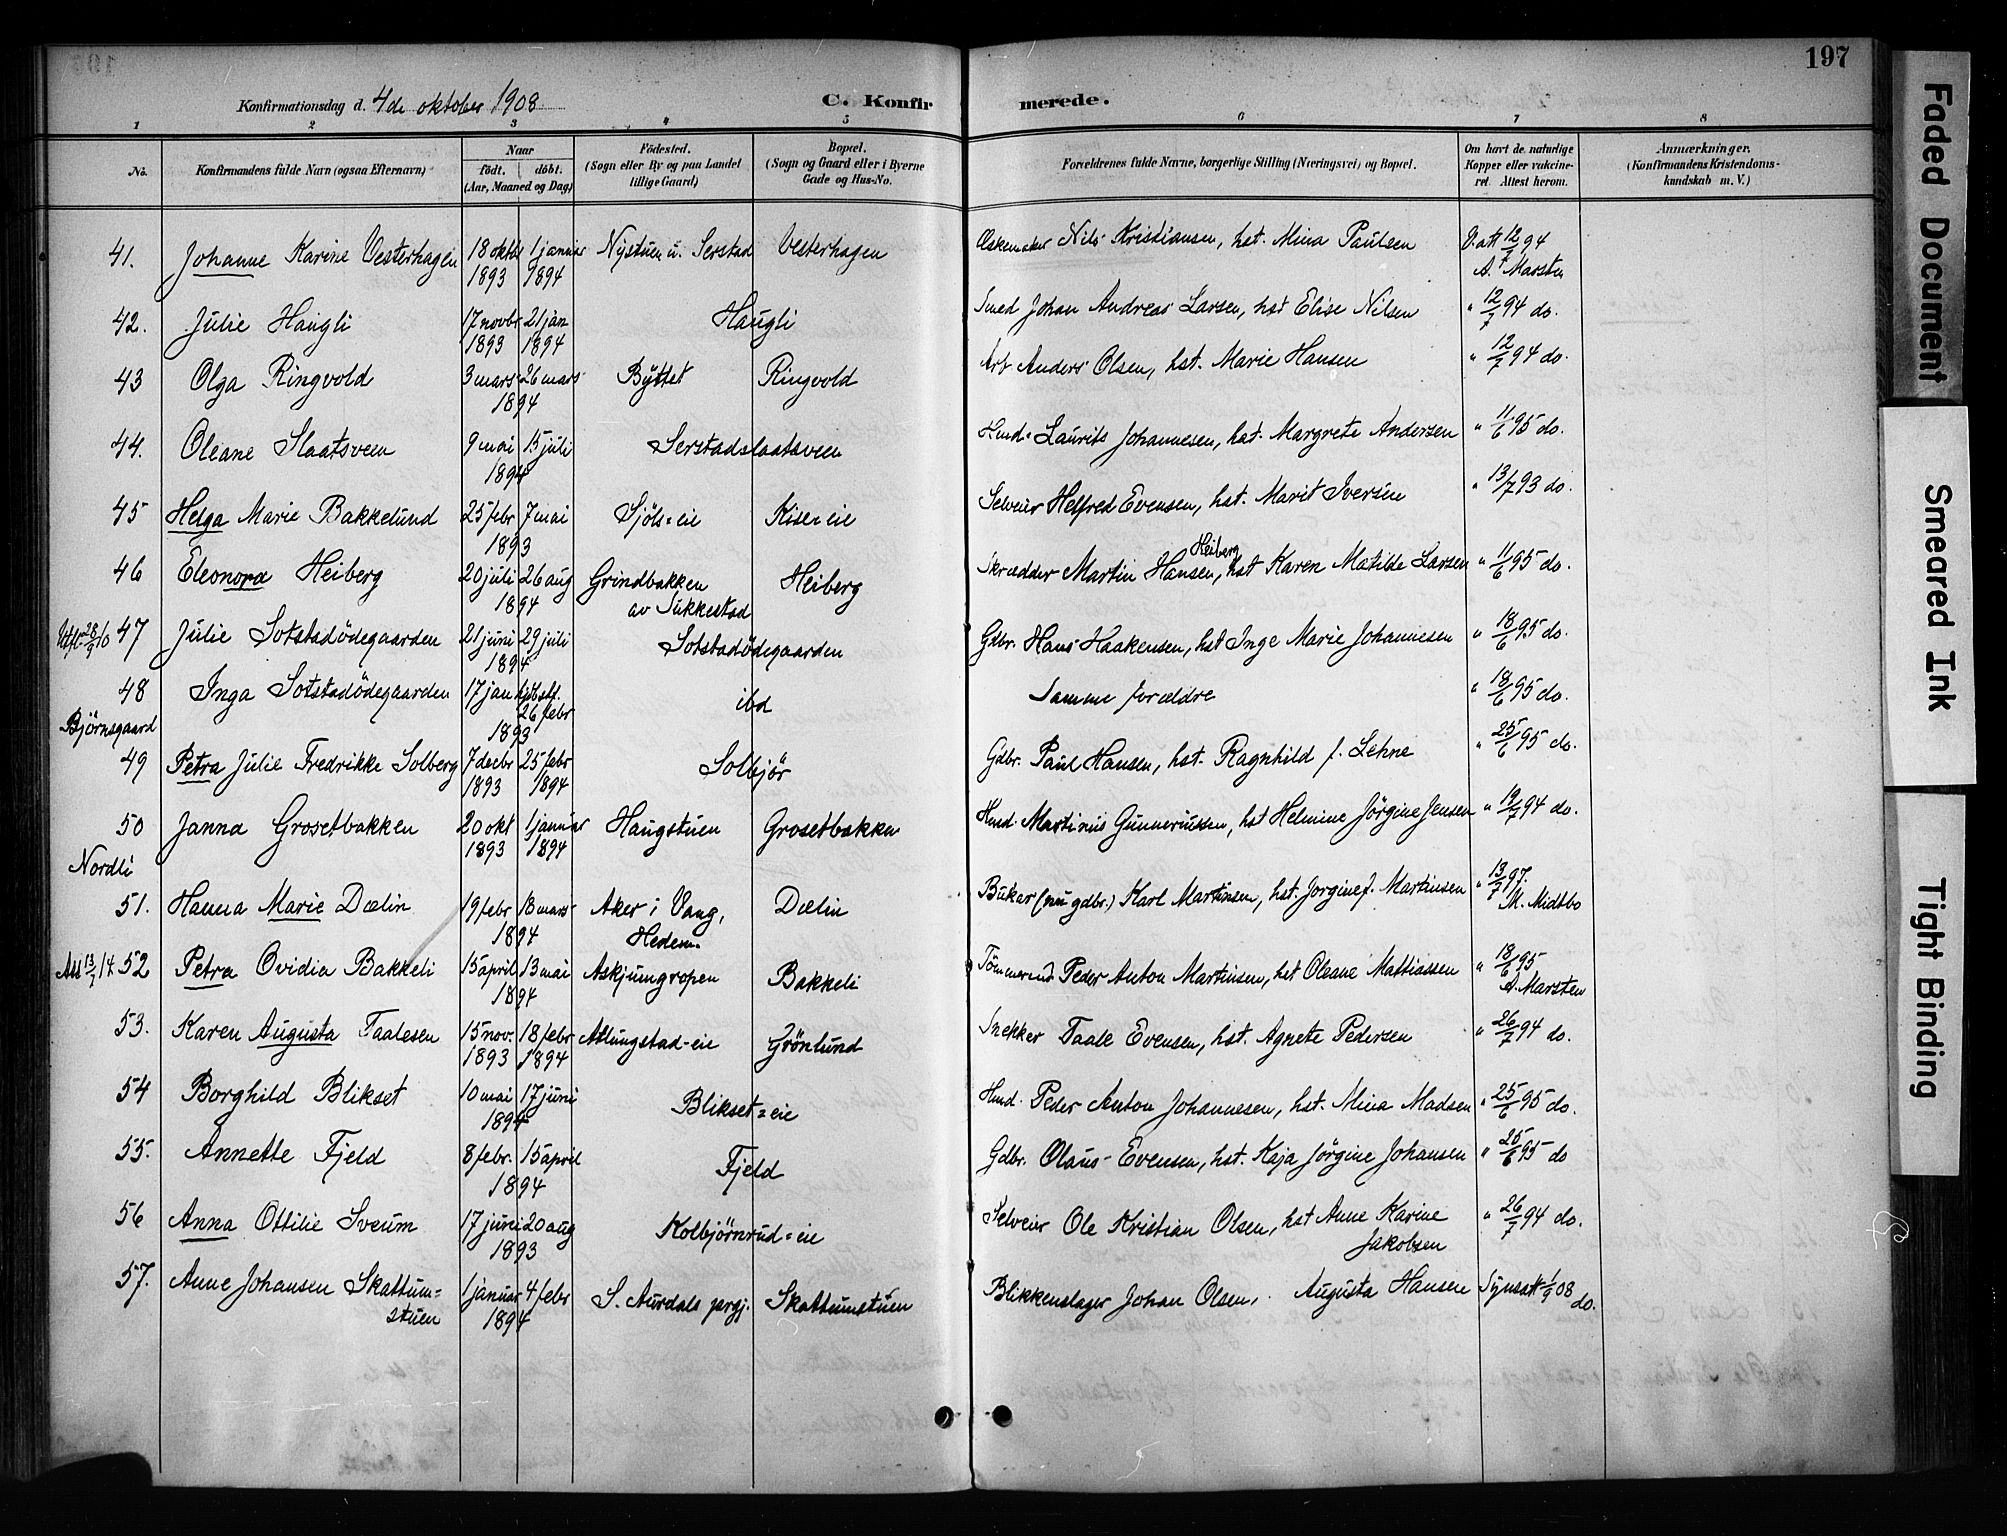 197
Konfirmationsdag d. 4de oktober 1908
C. Konfirmerede.
1 2 3 4 5 6 7 8
No. Konfirmandens fulde Navn (ogsaa Efternavn) Naar födt. döbt. (Aar, Maaned og Dag) Födested. (Sogn eller By og paa Landet tillige Gaard) Bopæl. (Sogn og Gaard eller i Byerne Gade og Hus-No. Forældrenes fulde Navne, borgerlige Stilling (Næringsvei) og Bopæl. Om havt de naturlige Kopper eller vakcineret. Attest herom. Anmærkninger. (Konfirmandens Kristendomskundskab m. V.)
41. Johanne Karine Vesterhagen 18 oktbr 1893 1 januar 1894 Nystuen u. Serstad Vesterhagen Nils Kristiansen, hst. Mina Paulsen V. att 12/7 94 A. Marsten
42. Julie Haugli 17 novbr 1893 21 jan 1894 Haugli Smed Johan Andreas Larsen, hst Elise Nilsen " 12/7 94 do.
43 Olga Ringvold 3 mars 26 mars 1894 Byttet Ringvold Arb Anders Olsen, hst. Marie Hansen " 12/7 94 do.
44. Oleane Slaatsveen 9 mai 15 juli 1894 Serstadslaatsveen Hmd. Laurits Johannesen, hst. Margrete Andersen " 11/6 95 do.
45 Helga Marie Bakkelund 25 febr 7 mai 1893 Sjöls=eie Kise=eie Selveier Helfred Evensen, hst. Marit Iversen " 13/7 93 do.
46 Eleonora Heiberg 20 juli 26 aug 1894 Grindbakken av Sukkestad Heiberg Skrædder Martin Hansen Heiberg, hst Karen Matilde Larsen " 11/6 95 do.
Utfl. 28/9 10 47 Julie Sotstadödegaarden 21 juni 29 juli 1894 Sotstadödegaarden Gdbr. Hans Haakensen, hst Inge Marie Johannesen " 18/6 95 do.
48 Inga Sotstadödegaarden 17 jan 26 febr 1893 ibd Samme forældre " 18/6 95 do.
Björnsgaard
49 Petra Julie Fredrikke Solberg 7 decbr 1893 25 febr 1894 Solbjör Gdbr. Paul Hansen, hst. Ragnhild f. Lehne " 25/6 95 do.
50 Janna Grosetbakken 20 okt 1893 1 januar 1894 Haugstuen Grosetbakken Hmd. Martinus Gunnerussen, hst Helmine Jörgine Jensen " 19/7 94 do.
Nordli
51. Hanna Marie Dælin 19 febr 18 mars 1894 Aker i Vang, Hedem. Dælin (nu gdbr.) Karl Martinsen, hst. Jorgine f. Martinsen " 13/7 97. M. Midtbo
Att 13/7 14 52 Petra Ovidia Bakkeli 15 april 13 mai 1894 Askjumgropen Bakkeli Tömmermd Peder Anton Martinsen, hst Oleane Mattiassen " 18/6 95 A. Marsten
53. Karen Augusta Taalesen 15 nov. 1893 18 febr 1894 Atlungstad-eie Grönlund Snekker Taale Evensen, hst. Agnete Pedersen " 26/7 94 do.
54 Borghild Blikset 10 mai 17 juni 1894 Blikset=eie Hmd. Peder Anton Johannesen, hst. Mina Madsen " 25/6 95 do.
55. Annette Fjeld 8 febr. 15 april 1894 Fjeld Gdbr. Olaus Evensen, hst. Kaja Jörgine Johansen " 25/6 95 do
56 Anna Ottilie Sveum 17 juni 20 aug 1893 Kolbjörnrud=eie Selveier Ole Kristian Olsen, hst Anne Karine Jakobsen " 26/7 94 do.
57. Anne Johansen Skattum=stuen 1 januar 4 febr 1894 S. Aurdals prgj. Skattumstuen Blikkenslager Johan Olsen, Augusta Hansen Synsatt 1/9 08 do.
Faded Document
Smeared Ink
Tight Binding